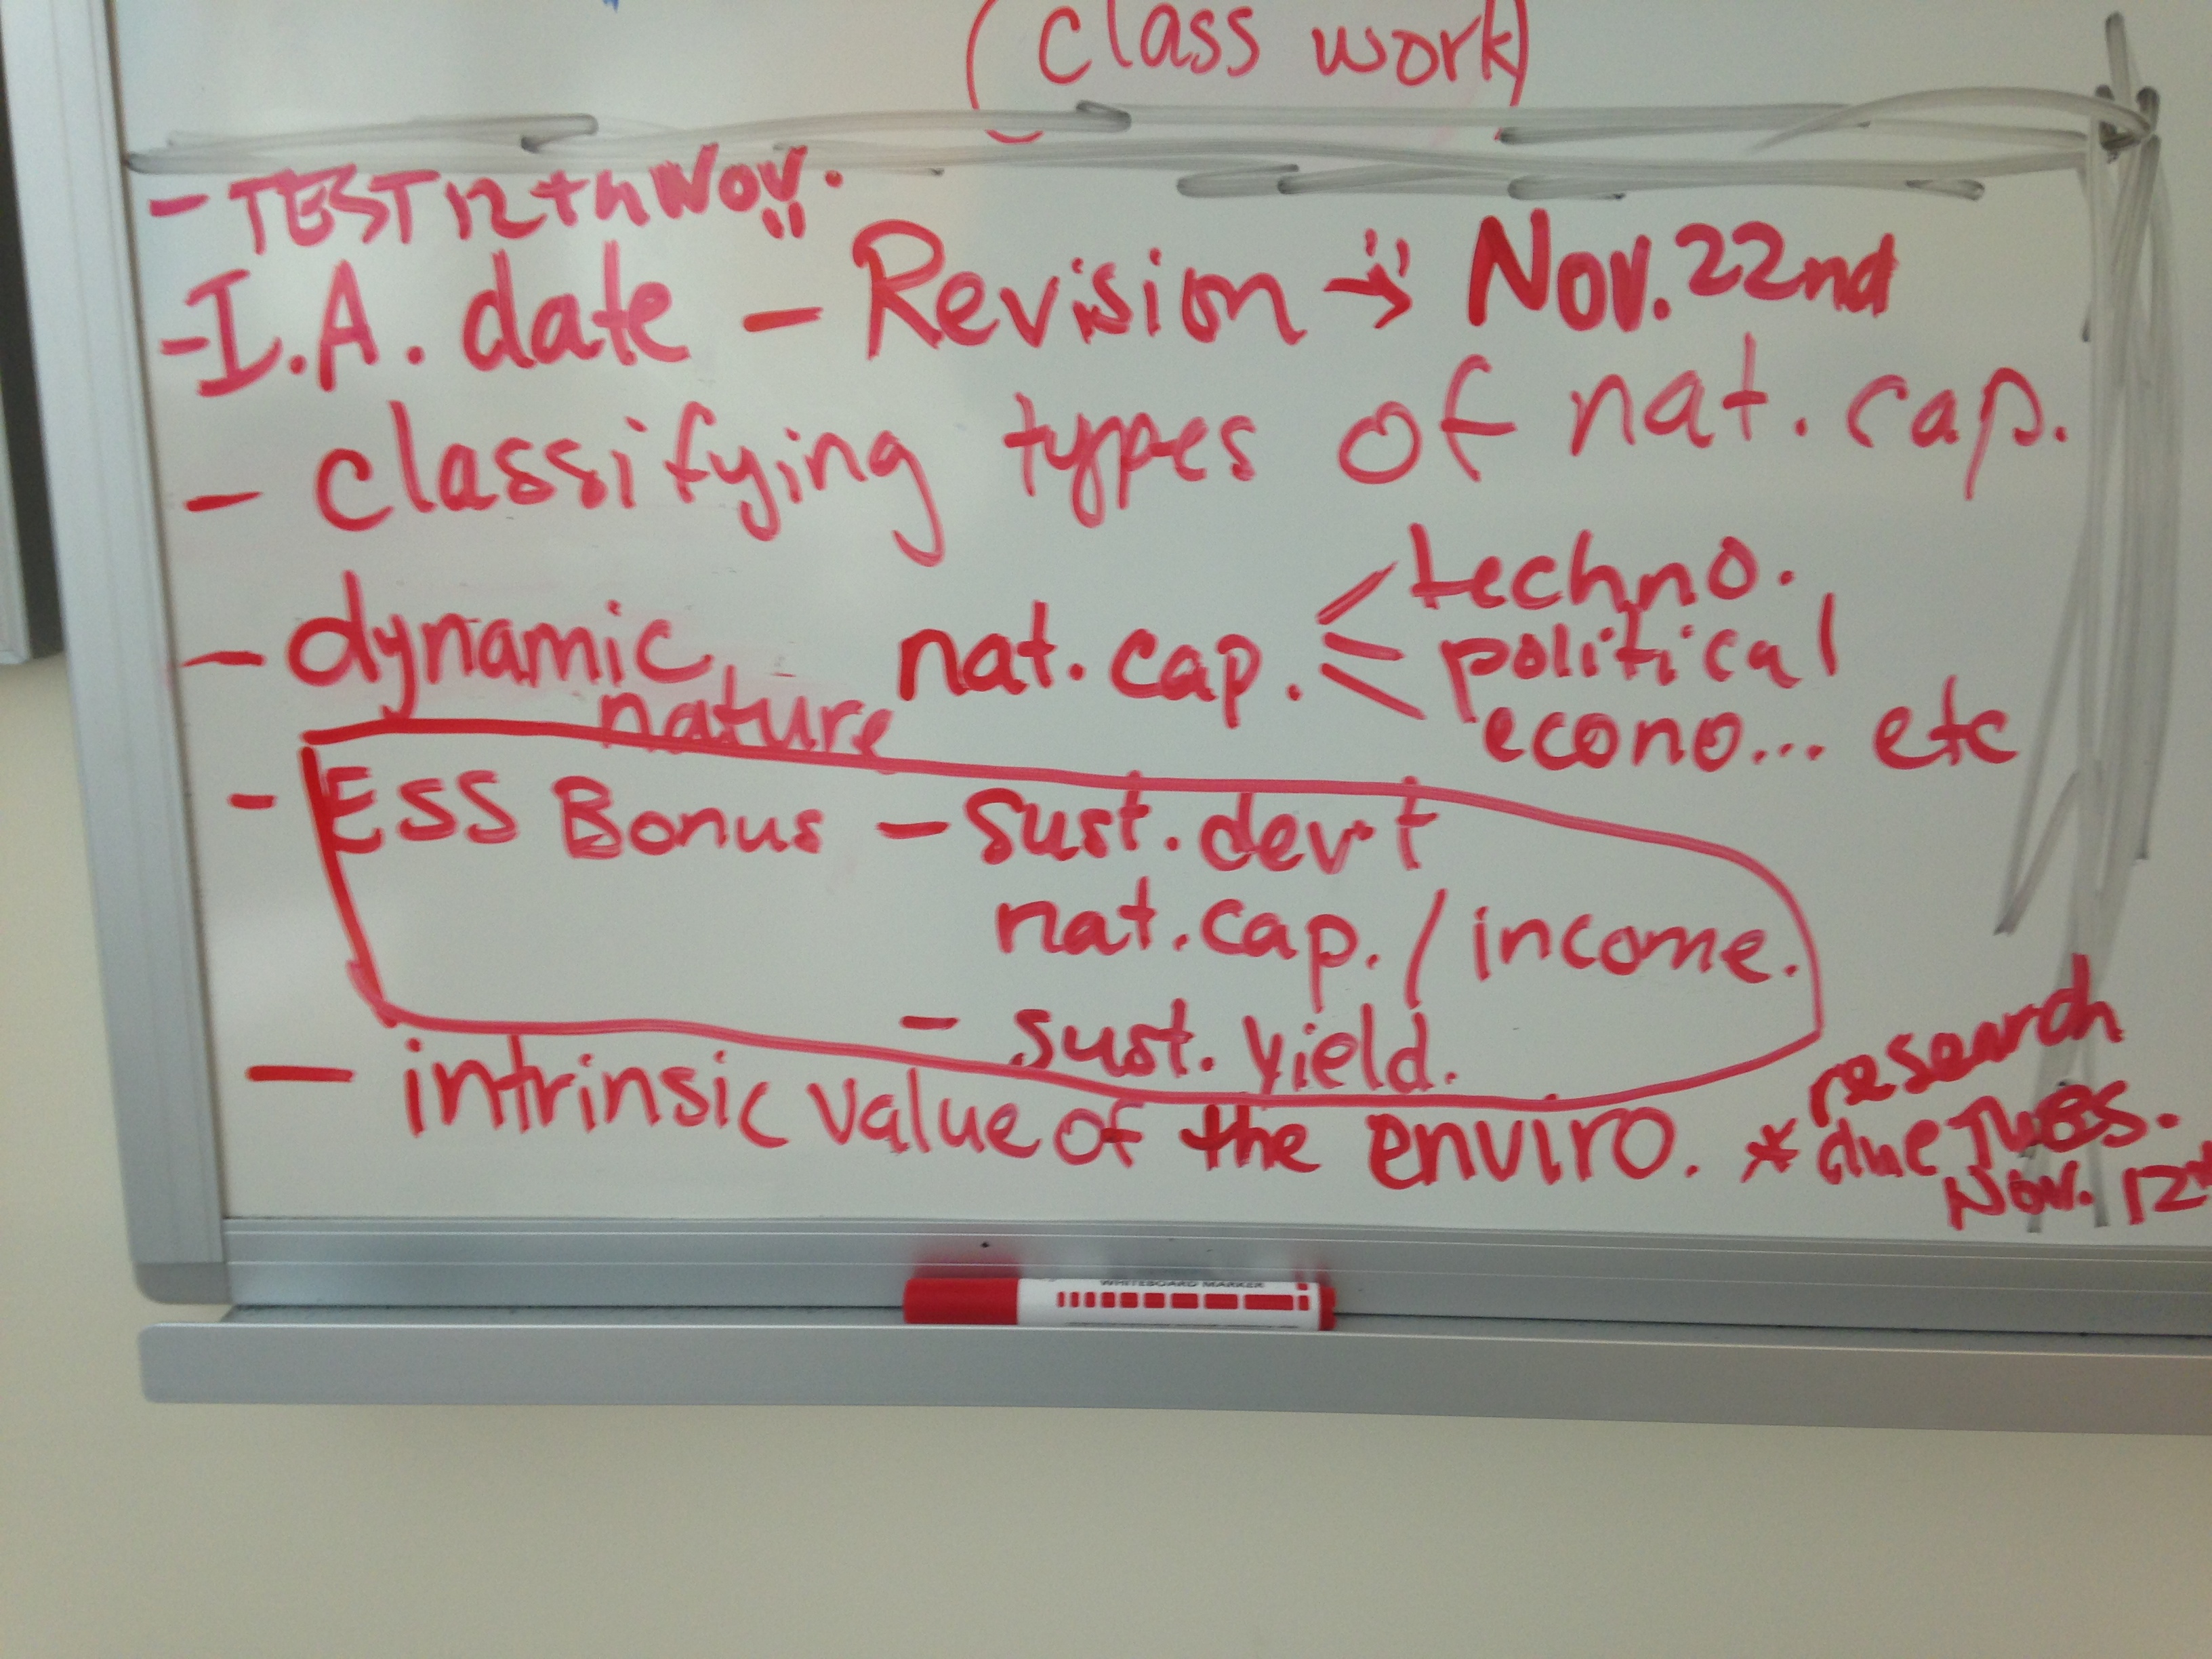 (class work)
- TEST 12th Nov.
- I.A. date - Revision → Nov. 22nd
- classifying types of nat. cap.
- dynamic nature nat. cap. techno.
political
econo... etc
- ESS Bonus - sust. dev't
nat. cap. / income.
- sust. yield.
- intrinsic value of the enviro. * research
due Tues.
Nov. 12th
WHITEBOARD MARKER